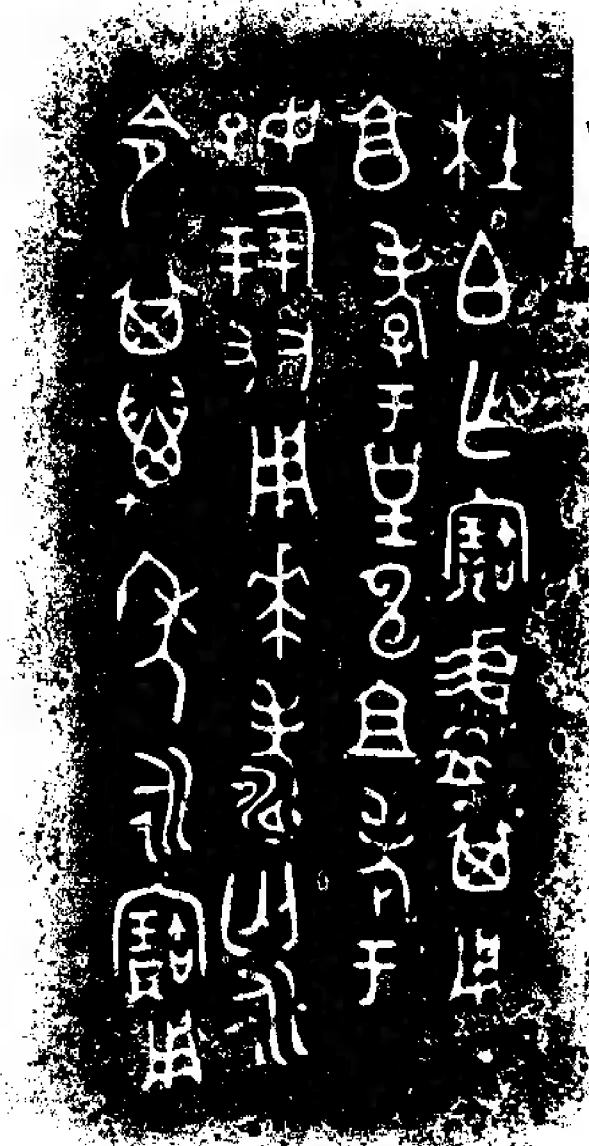 杜白乍寶盨其用
享孝于皇申且考于
好倗友用𠦪壽匄永
令其萬年永寶用